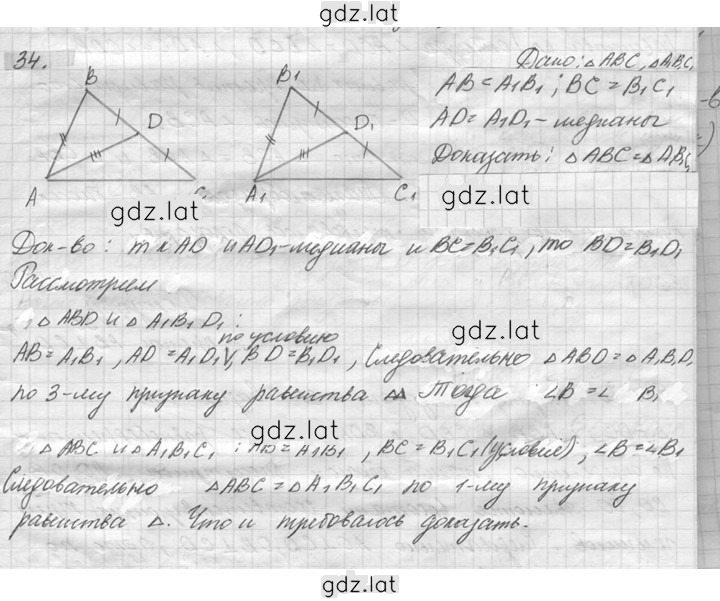 gdz.lat
34.
Дано: △ABC, △A1B1C1
AB = A1B1; BC = B1C1
AD = A1D1 - медианы
Доказать: △ABC = △A1B1C1
B
D
A
C
B1
D1
A1
C1
gdz.lat
gdz.lat
Док-во: т к AD и AD1-медианы и BC=B1C1, то BD=B1D1
Рассмотрем
△ABD и △A1B1D1:
по условию
AB=A1B1, AD=A1D1 V, BD=B1D1, Следовательно △ABD=△A1B1D1
gdz.lat
по 3-му признаку равенства △△ Тогда ∠B=∠ B1
△ABC и △A1B1C1: AB=A1B1, BC=B1C1(условие), ∠B=∠B1
gdz.lat
Следовательно △ABC=△A1B1C1 по 1-му признаку
равенства △. Что и требовалось доказать.
gdz.lat